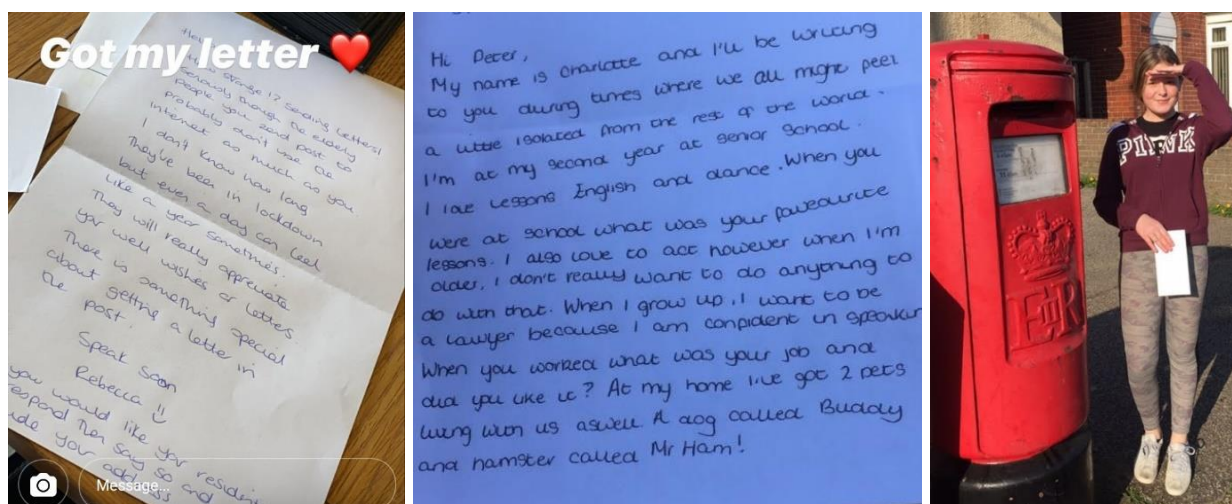 Got my letter ❤️
Hey
strange!? Sending letters!
Seriously though the elderly
people you send post to
probably don't use the
internet as much as you
I don't know how long
They've been in lockdown
but even a day can feel
like a year sometimes.
They will really appreciate
your well wishes or letters.
There is something special
about getting a letter in
the post.
Speak soon
Rebecca
you would like your resident
respond then say so and
your address
Message...
Hi Peter,
My name is Charlotte and I'll be writing
to you during times where we all might feel
a little isolated from the rest of the world.
I'm at my second year at senior school.
I love lessons English and dance. When you
were at school what was your favourite
lessons. I also love to act however when I'm
older, I don't really want to do anything to
do with that. When I grow up, I want to be
a lawyer because I am confident in speakin
When you worked what was your job and
did you like it? At my home I've got 2 pets
living with us aswell. A dog called Buddy
and hamster called Mr Ham!
PINK
EIIR